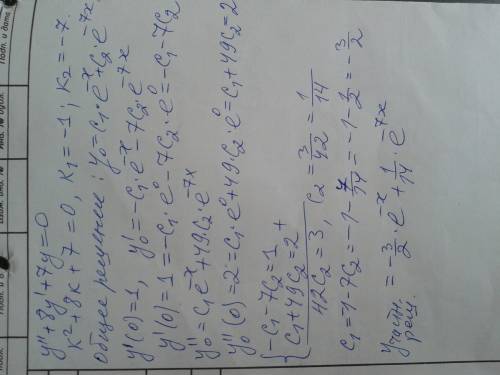 y''+8y'+7y=0
k²+8k+7=0, k₁=-1; k₂=-7.
Общее решение: y₀=c₁·e⁻ˣ+c₂·e⁻⁷ˣ
y'(0)=1, y₀'=-c₁e⁻ˣ-7c₂·e⁻⁷ˣ
y'(0)=1=-c₁·e⁰-7c₂·e⁰=-c₁-7c₂
y₀''=c₁e⁻ˣ+49·c₂·e⁻⁷ˣ
y₀''(0)=2=c₁·e⁰+49·c₂·e⁰=c₁+49c₂=2
{-c₁-7c₂=1 +
c₁+49c₂=2
42c₂=3, c₂=3/42=1/14
c₁=-1-7c₂=-1-7/14=-1-1/2=-3/2
y частн. реш. =-3/2·e⁻ˣ+1/14·e⁻⁷ˣ
Подп. и дата
Инв. № дубл.
Взам. инв. №
Подп. и дата